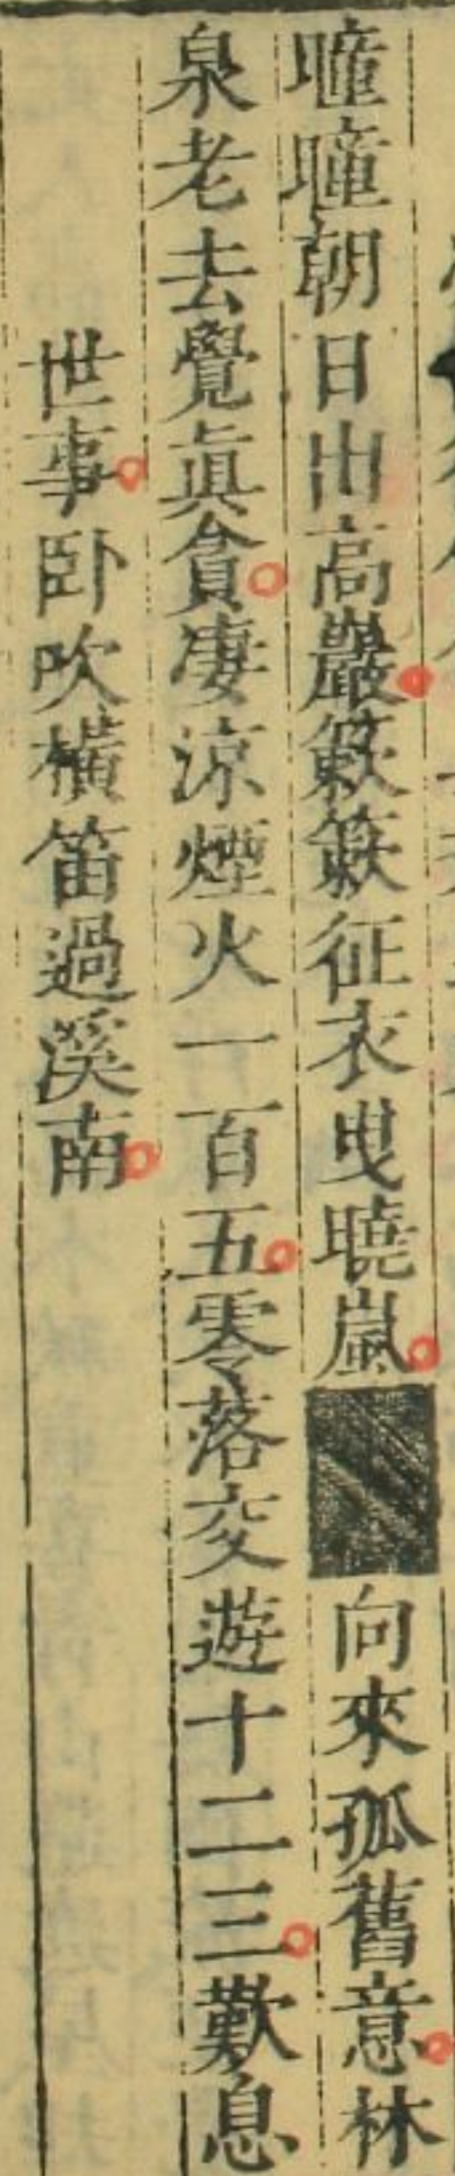 曈曈朝日出高巖簌簌征衣曳曉嵐向來孤舊意林
泉老去覺眞貪凄涼煙火一百五零落交遊十二三歎息
世事卧吹橫笛過溪南